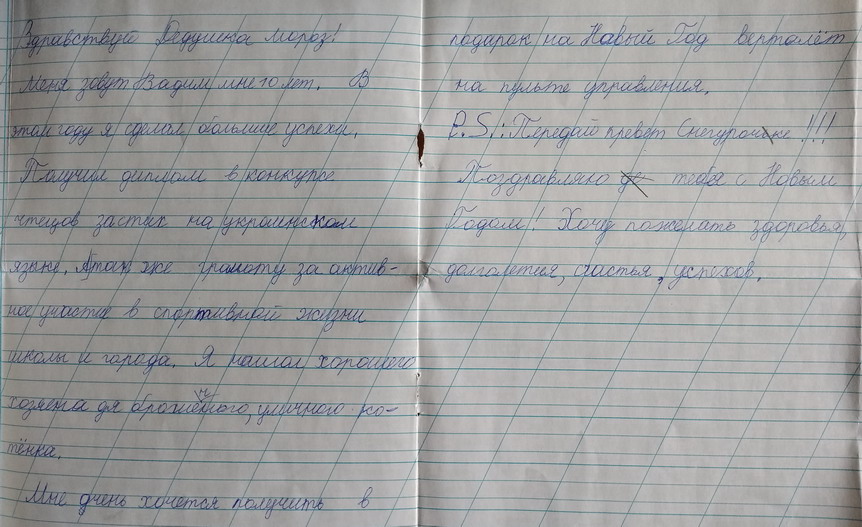 Здравствуй Дедушка Мороз!
Меня зовут Вадим мне 10 лет. В
этом году я сделал большие успехи.
Получил диплом в конкурсе
чтецов застих на украинском
языке. А так же грамоту за актив-
ное участие в спортивной жизни
школы и города. Я нашол хорошего
хозяена дя брошенного, уличного ко-
тёнка.
Мне очень хочется получить в
подарок на Новый Год вертолёт
на пульте управления.
P.S.: Передай превет Снегурочке!!!
Поздравляю тебя с Новым
Годом! Хочу пожелать здоровья,
долголетия, счастья, успехов.